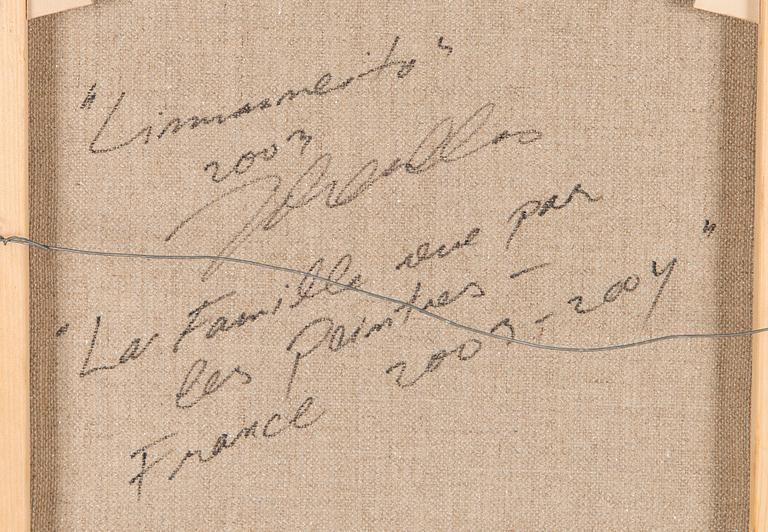 2003
"La Famille vue par
les Peintres -
France 2003-2004"